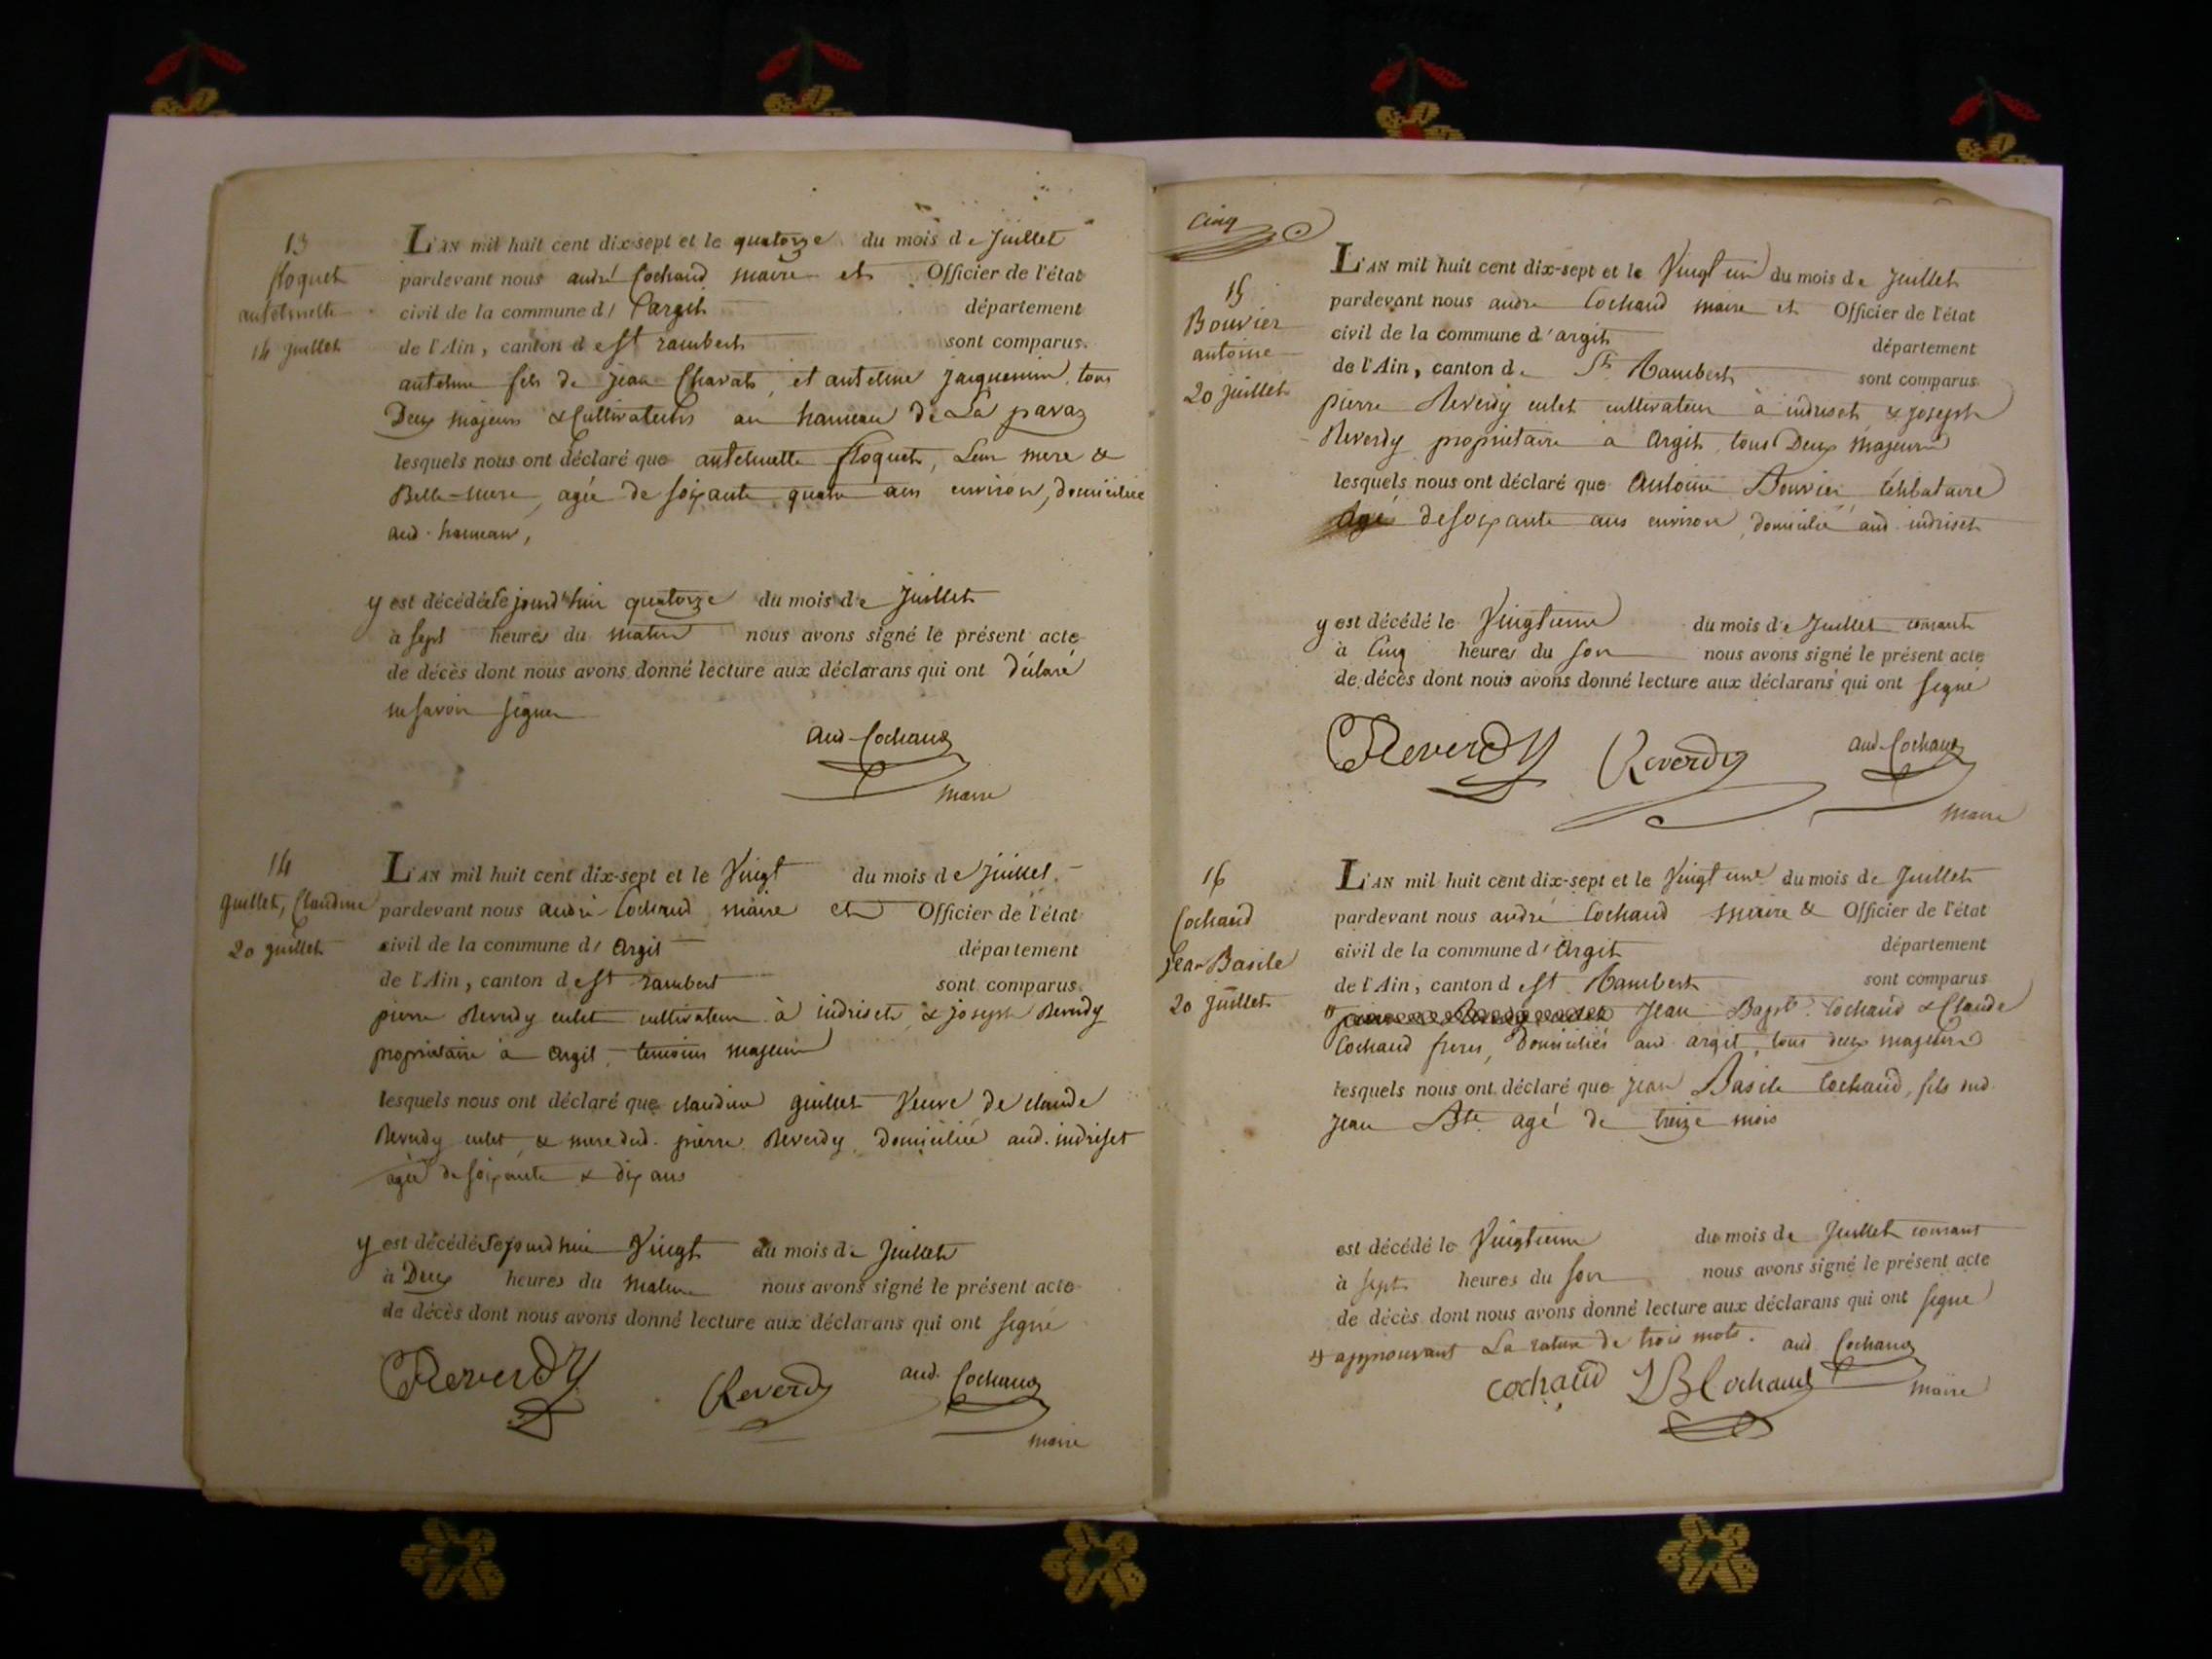 13
floquet
antelmette
14 Juillet
L'AN mil huit cent dix-sept et le quatorze du mois de Juillet
pardevant nous andré Cochaud maire et Officier de l'état
civil de la commune d' argit département
de l'Ain, canton de St rambert sont comparus.
antelme fils de jean Charat, et antelme jacquemin, tous
Deux majeurs & Cultivateurs au hameau de La pavaz
lesquels nous ont déclaré que antelmette floquet, Leur mere &
Belle-mere, agée de soixante quatre ans environ, domiciliée
aud. hameau,
y est décédée ce jourd'hui quatorze du mois de Juillet
à sept heures du matin nous avons signé le présent acte
de décès dont nous avons donné lecture aux déclarans qui ont déclaré
ne savoir signer
And Cochaud
maire
14
guillet, Claudine
20 juillet
L'AN mil huit cent dix-sept et le Vingt du mois de juillet.
pardevant nous andré Cochaud maire et Officier de l'état
civil de la commune d' argit département
de l'Ain, canton de St rambert sont comparus.
pierre Reverdy culet cultivateur à indriset, & joseph Reverdy
propriétaire à argit, temoins majeurs
lesquels nous ont déclaré que claudine guillet Veuve de claude
Reverdy culet, & mere dud. pierre Reverdy, domiciliée aud. indriset
agée de soixante & dix ans
y est décédée ce jourd'hui Vingt du mois de Juillet
à Deux heures du matin nous avons signé le présent acte
de décès dont nous avons donné lecture aux déclarans qui ont signé
Reverdy Reverdy and. Cochaud
maire
Cinq
15
Bouvier
antoine
20 juillet
L'AN mil huit cent dix-sept et le Vingt un du mois de Juillet
pardevant nous andré Cochaud maire et Officier de l'état
civil de la commune d'argit département
de l'Ain, canton de St Rambert sont comparus
pierre Reverdy culet cultivateur à indriset & joseph
Reverdy propriétaire à Argit, tous Deux majeurs
lesquels nous ont déclaré que Antoine Bouvier célibataire
agé de soixante ans environ, domicilié aud. indriset
y est décédé le Vingtieme du mois de Juillet courant
à Cinq heures du soir nous avons signé le présent acte
de décès dont nous avons donné lecture aux déclarans qui ont signé
Reverdy Reverdy and. Cochaud
maire
16
Cochaud
Jean Basile
20 juillet
L'AN mil huit cent dix-sept et le Vingt une du mois de Juillet
pardevant nous andré Cochaud maire & Officier de l'état
civil de la commune d'Argit département
de l'Ain, canton de St Rambert sont comparus
Jean Bapt. Cochaud & Claude
Cochaud freres, Domiciliés aud. argit, tous deux majeurs
lesquels nous ont déclaré que Jean Basile Cochaud, fils dud.
Jean Bte agé de treize mois
est décédé le Vingtieme du mois de Juillet courant
à sept heures du soir nous avons signé le présent acte
de décès dont nous avons donné lecture aux déclarans qui ont signé
approuvant La rature de trois mots. and. Cochaud
cochaud JB Cochaud maire